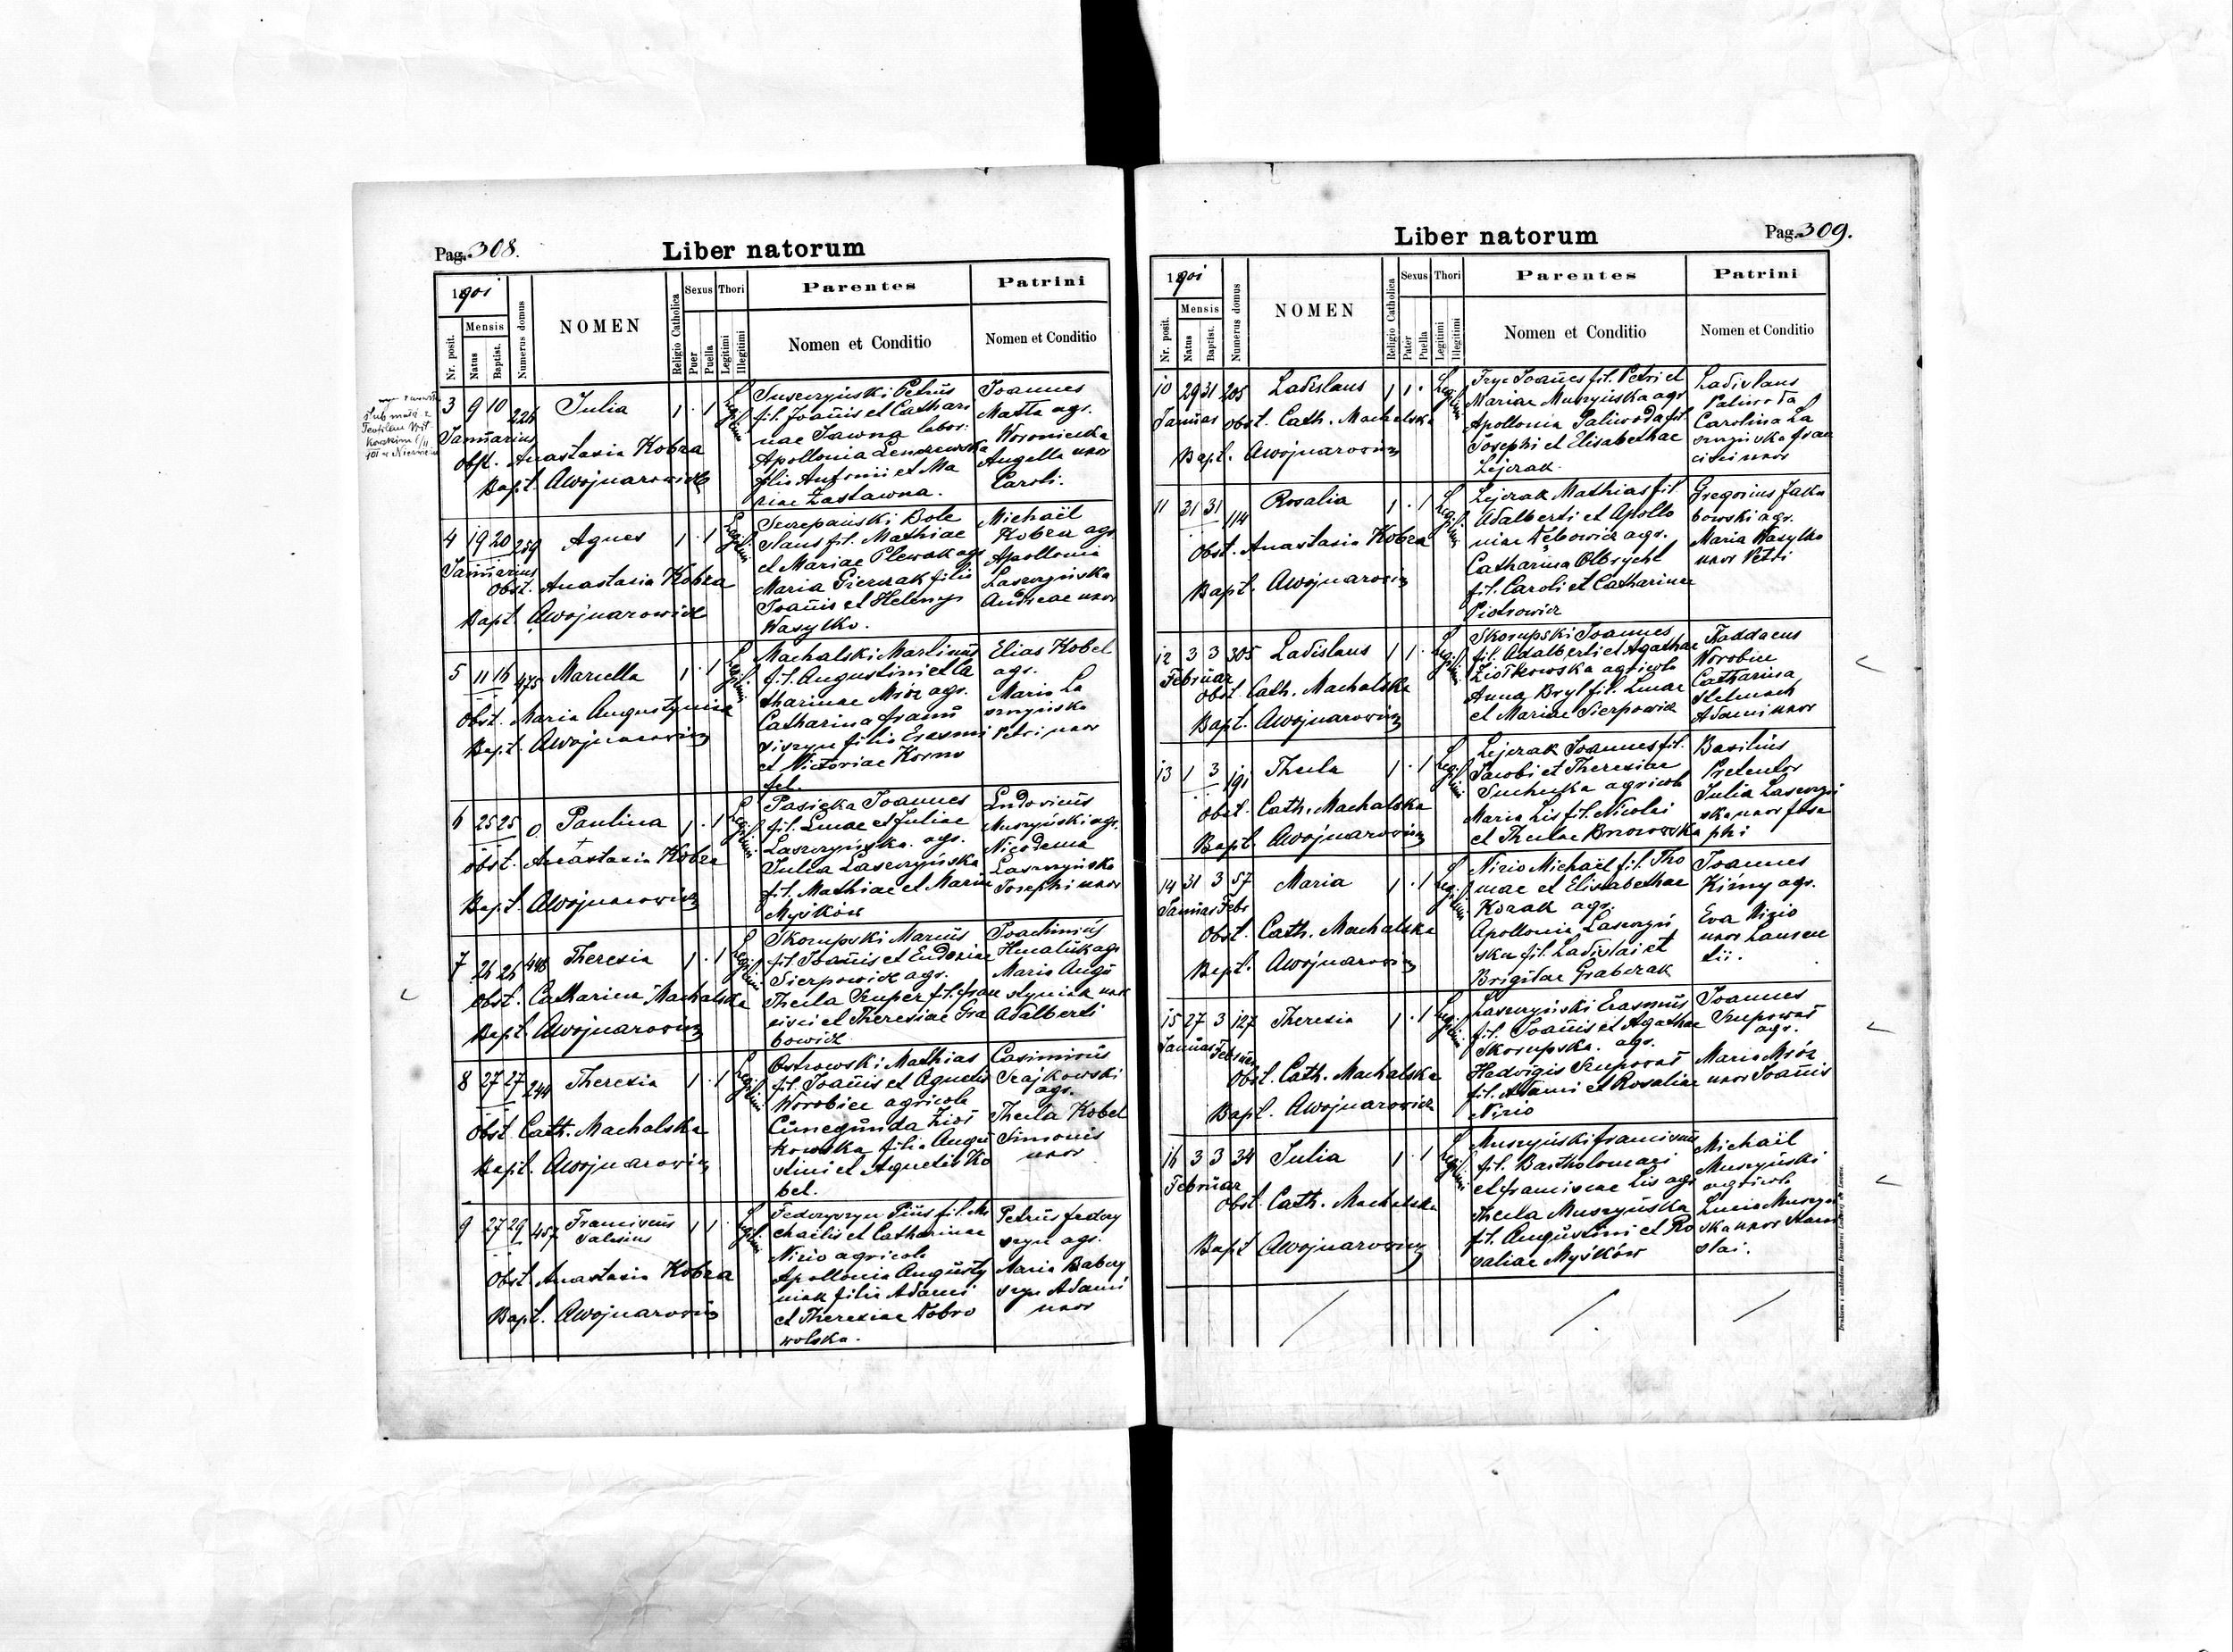 Pag. 308.
Liber natorum
1901
Nr. posit.
Mensis
Natus
Baptist.
Numerus domus
NOMEN
Religio Catholica
Sexus
Puer
Puella
Thori
Legitimi
Illegitimi
Parentes
Nomen et Conditio
Patrini
Nomen et Conditio
3 9 10 226 Julia 1 . 1
Januarius
Obst. Anastasia Kobza
Bapt. AWojnarowicz
Legitimi
Suszczyński Petrus
fil. Joannis et Cathari
nae Sawna labor.
Apollonia Lenczewska
filia Antonii et Ma
riae Zastawna.
Joannes
Matta agr.
Woroniecka
Angella uxor
Caroli.
4 19 20 259 Agnes 1 . 1
Januarius
Obst. Anastasia Kobza
Bapt. AWojnarowicz
Legitimi
Szczepański Bole
slaus fil. Mathiae
et Mariae Plewak agr.
Maria Gierczak filia
Joannis et Helenys
Wasylko.
Michaël
Kobza agr.
Apollonia
Laszczyńska
Andreae uxor
5 11 16 475 Marcella 1 . 1
Obst. Maria Augustyniak
Bapt. AWojnarowicz
Legitimi
Machalski Martinus
fil. Augustini et Ca
tharinae Mróz agr.
Catharina Franci
siszyn filia Erasmi
et Victoriae Korno
fel.
Elias Kobel
agr.
Maria La
szczyńska
Petri uxor
6 25 25 0 Paulina 1 . 1
Obst. Anastasia Kobza
Bapt. AWojnarowicz
Legitimi
Pasieka Joannes
fil. Lucae et Juliae
Laszczyńska. agr.
Julia Laszczyńska
fil. Mathiae et Mariae
Myśków
Ludovicus
Muszyński agr.
Nicodema
Laszczyńska
Josephi uxor
7 26 26 448 Theresia 1 . 1
Obst. Catharina Machalska
Bapt. AWojnarowicz
Legitimi
Skorupski Marcus
fil. Joannis et Eudoxiae
Sierpowicz agr.
Thecla Szuper fil. Fran
cisci et Theresiae Gra
bowicz
Joachimus
Hnatiuk agr.
Maria Augu
styniak uxor
Adalberti
8 27 27 244 Theresia 1 . 1
Obst. Cath. Machalska
Bapt. AWojnarowicz
Legitimi
Ostrowski Mathias
fil. Joannis et Agnetis
Worobiec agricola
Cunegunda Ziół
kowska filia Augu
stini et Agnetis Ko
bel.
Casimirus
Szajkowski
agr.
Thecla Kobel
Simonis
uxor
9 27 29 457 Franciscus 1 1 .
Salesius
Obst. Anastasia Kobza
Bapt. AWojnarowicz
Legitimi
Fedoryszyn Pius fil. Mi
chaëlis et Catharinae
Nizio agricola
Apollonia Augusty
niak filia Adami
et Theresiae Dobro
wolska.
Petrus Fedory
szyn agr.
Maria Babory
szyn Adami
uxor
Pag. 309.
Liber natorum
1901
Nr. posit.
Mensis
Natus
Baptist.
Numerus domus
NOMEN
Religio Catholica
Sexus
Pater
Puella
Thori
Legitimi
Illegitimi
Parentes
Nomen et Conditio
Patrini
Nomen et Conditio
10 29 31 205 Ladislaus 1 1 .
Januar Obst. Cath. Machalska
Bapt. AWojnarowicz
Legitimi
Joannes fil. Petri et
Mariae Muszyńska agr.
Apollonia Paliwoda fil.
Josephi et Elisabethae
Lejczak.
Ladislaus
Paliwoda
Carolina La
szczyńska Fran
cisci uxor
11 31 31 114 Rosalia 1 . 1
Obst. Anastasia Kobza
Bapt. AWojnarowicz
Legitimi
Lejczak Mathias fil.
Adalberti et Apollo
niae Dębowicz agr.
Catharina Olbrycht
fil. Caroli et Catharinae
Piotrowicz
Gregorius Jaku
bowski agr.
Maria Wasylko
uxor Petri
12 3 3 305 Ladislaus 1 1 .
Februar
Obst. Cath. Machalska
Bapt. AWojnarowicz
Legitimi
Skorupski Joannes
fil. Adalberti et Agathae
Ziółkowska agricola
Anna Bryl fil. Lucae
et Mariae Sierpowicz
Taddaeus
Worobiec
Catharina
Stelmach
Adami uxor
13 1 3 191 Thecla 1 . 1
Obst. Cath. Machalska
Bapt. AWojnarowicz
Legitimi
Lejczak Joannes fil.
Jacobi et Theresiae
Suchecka agricola
Maria Lis fil. Nicolai
et Theclae Borowska
Basilius
Pretentor
Julia Laszczyń
ska uxor Jose
phi
14 31 3 57 Maria 1 . 1
Januar Febr
Obst. Cath. Machalska
Bapt. AWojnarowicz
Legitimi
Nizio Michaël fil. Tho
mae et Elisabethae
Kozak agr.
Apollonia Laszczyń
ska fil. Ladislai et
Brigitae Grabczak
Joannes
Kirny agr.
Eva Nizio
uxor Lauren
tii.
15 27 3 127 Theresia 1 . 1
Januar Februar
Obst. Cath. Machalska
Bapt. AWojnarowicz
Legitimi
Laszczyński Erasmus
fil. Joannis et Agathae
Skorupska. agr.
Hedvigis Szuporat
fil. Adami et Rosaliae
Nizio
Joannes
Szuporat
agr.
Maria Mróz
uxor Joannis
16 3 3 34 Julia 1 . 1
Februar
Obst. Cath. Machalska
Bapt AWojnarowicz
Legitimi
Muszyński Franciscus
fil. Bartholomaei
et Franciscae Lis agr.
Thecla Muszyńska
fil. Augustini et Ro
saliae Myśków
Michaël
Muszyński
agricola
Lucia Muszyń
ska uxor Stani
slai.